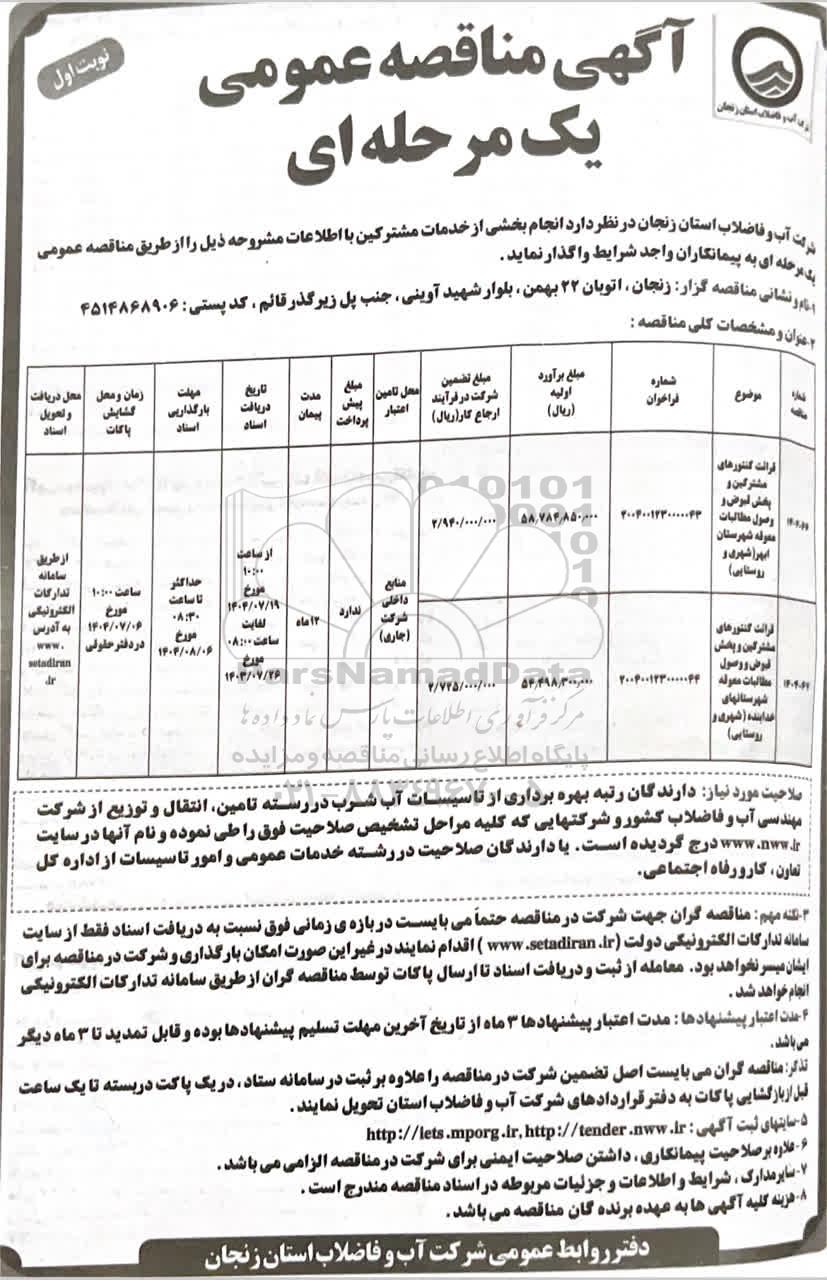 شرکت آب و فاضلاب استان زنجان
نوبت اول
آگهی مناقصه عمومی
یک مرحله ای
شرکت آب و فاضلاب استان زنجان در نظر دارد انجام بخشی از خدمات مشترکین با اطلاعات مشروحه ذیل را از طریق مناقصه عمومی
یک مرحله ای به پیمانکاران واجد شرایط واگذار نماید .
۱-نام و نشانی مناقصه گزار: زنجان ، اتوبان ۲۲ بهمن ، بلوار شهید آوینی ، جنب پل زیرگذر قائم ، کد پستی : ۴۵۱۴۸۶۸۹۰۶
۲-عنوان و مشخصات کلی مناقصه :
شماره مناقصه
موضوع
شماره فراخوان
مبلغ برآورد اولیه (ریال)
مبلغ تضمین شرکت در فرآیند ارجاع کار(ریال)
محل تامین اعتبار
مبلغ پیش پرداخت
مدت پیمان
تاریخ دریافت اسناد
مهلت بارگذاریی اسناد
زمان و محل گشایش پاکات
محل دریافت و تحویل اسناد
۱۴۰۴-۶۶
قرائت کنتورهای
مشترکین و
پخش قبوض و
وصول مطالبات
معوقه شهرستان
ابهر(شهری و
روستایی)
۲۰۰۴۰۰۱۲۳۰۰۰۰۰۴۳
۵۸,۷۸۲,۸۵۰,۰۰۰
۲/۹۴۰/۰۰۰/۰۰۰
منابع
داخلی
شرکت
(جاری)
ندارد
۱۲ماه
از ساعت
۱۰:۰۰
مورخ
۱۴۰۴/۰۷/۱۹
لغایت
ساعت ۰۸:۰۰
مورخ
۱۴۰۳/۰۷/۲۶
حداکثر
تا ساعت
۰۸:۳۰
مورخ
۱۴۰۴/۰۸/۰۶
ساعت ۱۰:۰۰
مورخ
۱۴۰۴/۰۷/۰۶
در دفتر حقوقی
از طریق
سامانه
تدارکات
الکترونیکی
به آدرس
www.
setadiran
.ir
۱۴۰۴-۶۷
قرائت کنتورهای
مشترکین و پخش
قبوض و وصول
مطالبات معوقه
شهرستانهای
خدابنده (شهری و
روستایی)
۲۰۰۴۰۰۱۲۳۰۰۰۰۰۴۴
۵۴,۴۹۸,۳۰۰,۰۰۰
۲/۷۲۵/۰۰۰/۰۰۰
ParsNamadData
مرکز فرآوری اطلاعات پارس نماد داده ها
پایگاه اطلاع رسانی مناقصه و مزایده
۰۲۱-۸۸۳۴۹۶۷۰-۵
صلاحیت مورد نیاز: دارندگان رتبه بهره برداری از تاسیسات آب شرب در رسته تامین، انتقال و توزیع از شرکت
مهندسی آب و فاضلاب کشور و شرکتهایی که کلیه مراحل تشخیص صلاحیت فوق را طی نموده و نام آنها در سایت
www.nww.ir درج گردیده است. یا دارندگان صلاحیت در رشته خدمات عمومی و امور تاسیسات از اداره کل
تعاون ، کار و رفاه اجتماعی.
۳-نکته مهم : مناقصه گران جهت شرکت در مناقصه حتماً می بایست در بازه ی زمانی فوق نسبت به دریافت اسناد فقط از سایت
سامانه تدارکات الکترونیکی دولت (www.setadiran.ir) اقدام نمایند در غیر این صورت امکان بارگذاری و شرکت در مناقصه برای
ایشان میسر نخواهد بود. معامله از ثبت و دریافت اسناد تا ارسال پاکات توسط مناقصه گران از طریق سامانه تدارکات الکترونیکی
انجام خواهد شد .
۴-مدت اعتبار پیشنهادها : مدت اعتبار پیشنهادها ۳ ماه از تاریخ آخرین مهلت تسلیم پیشنهادها بوده و قابل تمدید تا ۳ ماه دیگر
می باشد.
تذکر: مناقصه گران می بایست اصل تضمین شرکت در مناقصه را علاوه بر ثبت در سامانه ستاد ، در یک پاکت دربسته تا یک ساعت
قبل از بازگشایی پاکات به دفتر قراردادهای شرکت آب و فاضلاب استان تحویل نمایند .
۵-سایتهای ثبت آگهی : http://iets.mporg.ir,http://tender.nww.ir
۶-علاوه بر صلاحیت پیمانکاری ، داشتن صلاحیت ایمنی برای شرکت در مناقصه الزامی می باشد .
۷-سایر مدارک ، شرایط و اطلاعات و جزئیات مربوطه در اسناد مناقصه مندرج است .
۸-هزینه کلیه آگهی ها به عهده برنده گان مناقصه می باشد .
دفتر روابط عمومی شرکت آب و فاضلاب استان زنجان